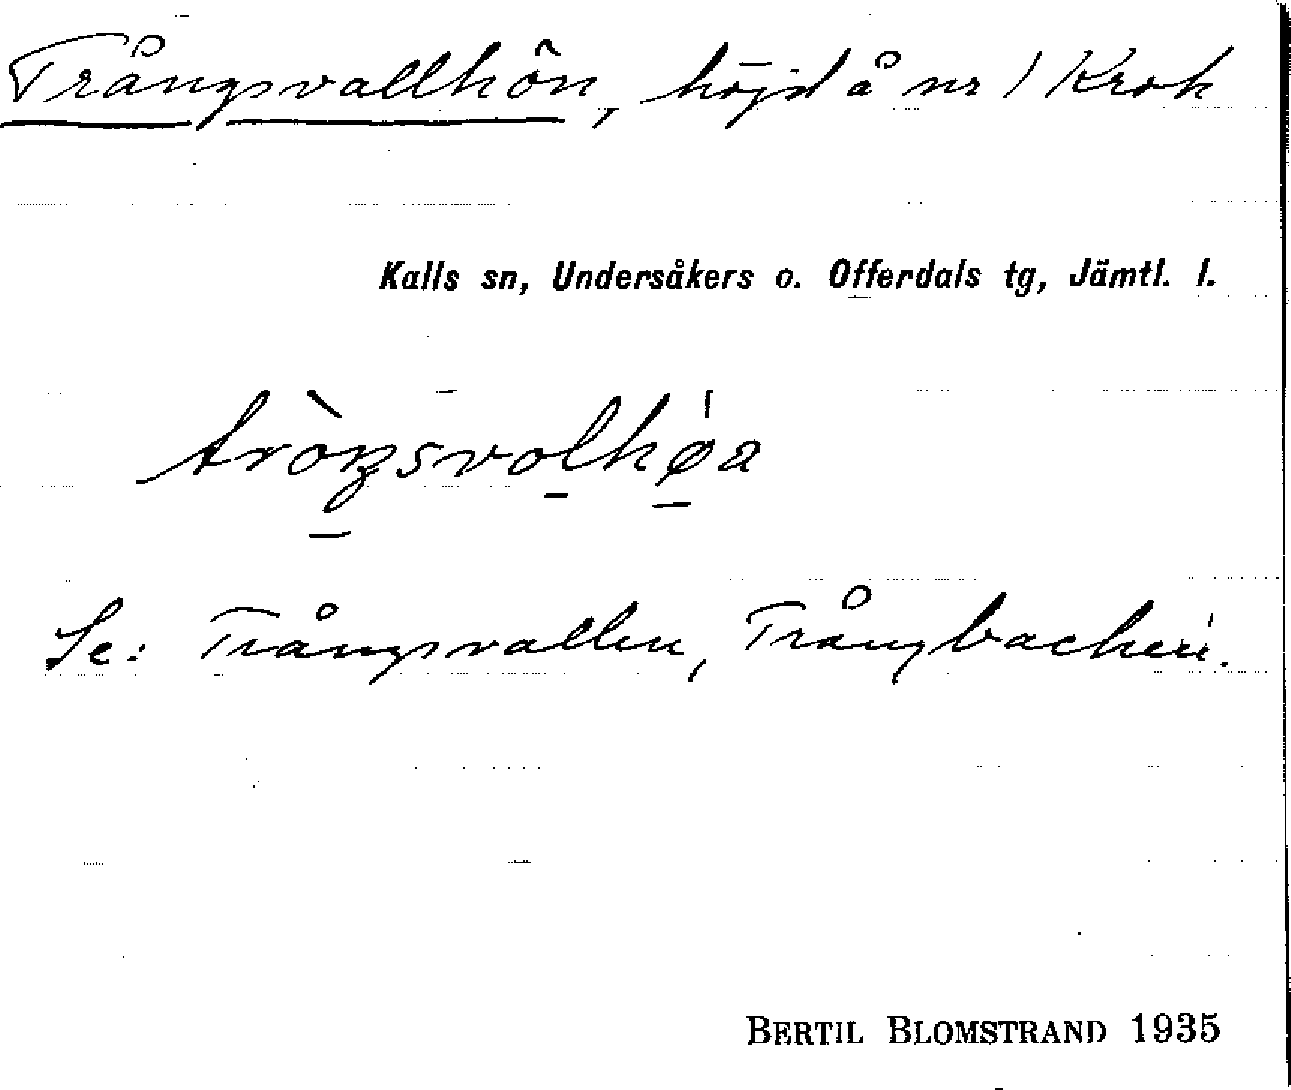 Trångsvallhôn, höjd å nr 1 Krok
Kalls sn, Undersåkers o. Offerdals tg, Jämtl. l.
tròŋsvolhøa
Se: Trångsvallen, Trångbacken.
BERTIL BLOMSTRAND 1935